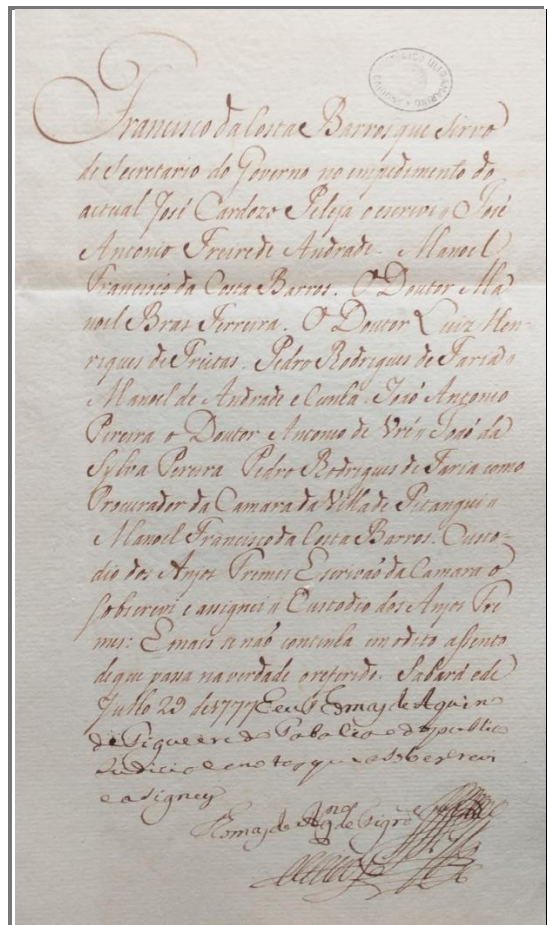 ULTRAMARINO
Francisco da Costa Barros que Sirvo
de Secretario do Governo no impedimento do
actual José Cardozo Peleja o escrevi // José
Antonio Freire de Andrade. Manoel
Francisco da Costa Barros. O Doutor Ma
noel Bras Ferreira. O Doutor Luiz Hen-
riques de Freitas. Pedro Rodrigues de Faria //
Manoel de Andrade e Cunha. João Antonio
Pereira o Doutor Antonio de // João da
Sylva Pereira Pedro Rodrigues de Faria como
Procurador da Camara da Villa de Pitangui //
Manoel Francisco da Costa Barros. Custo-
dio dos Anjos Escrivaõ da Camara o
sobscrevi e assignei // Custodio dos Anjos
E mais se naõ continha em o dito assento
de que passa na verdade o referido. Sabará e de
Julho 29 de 1777 E eu Tomas de Aquin
de Figueredo
Judicial e notas que o sobescrevi
e asigney
Tomas de Aqno de Figrdo